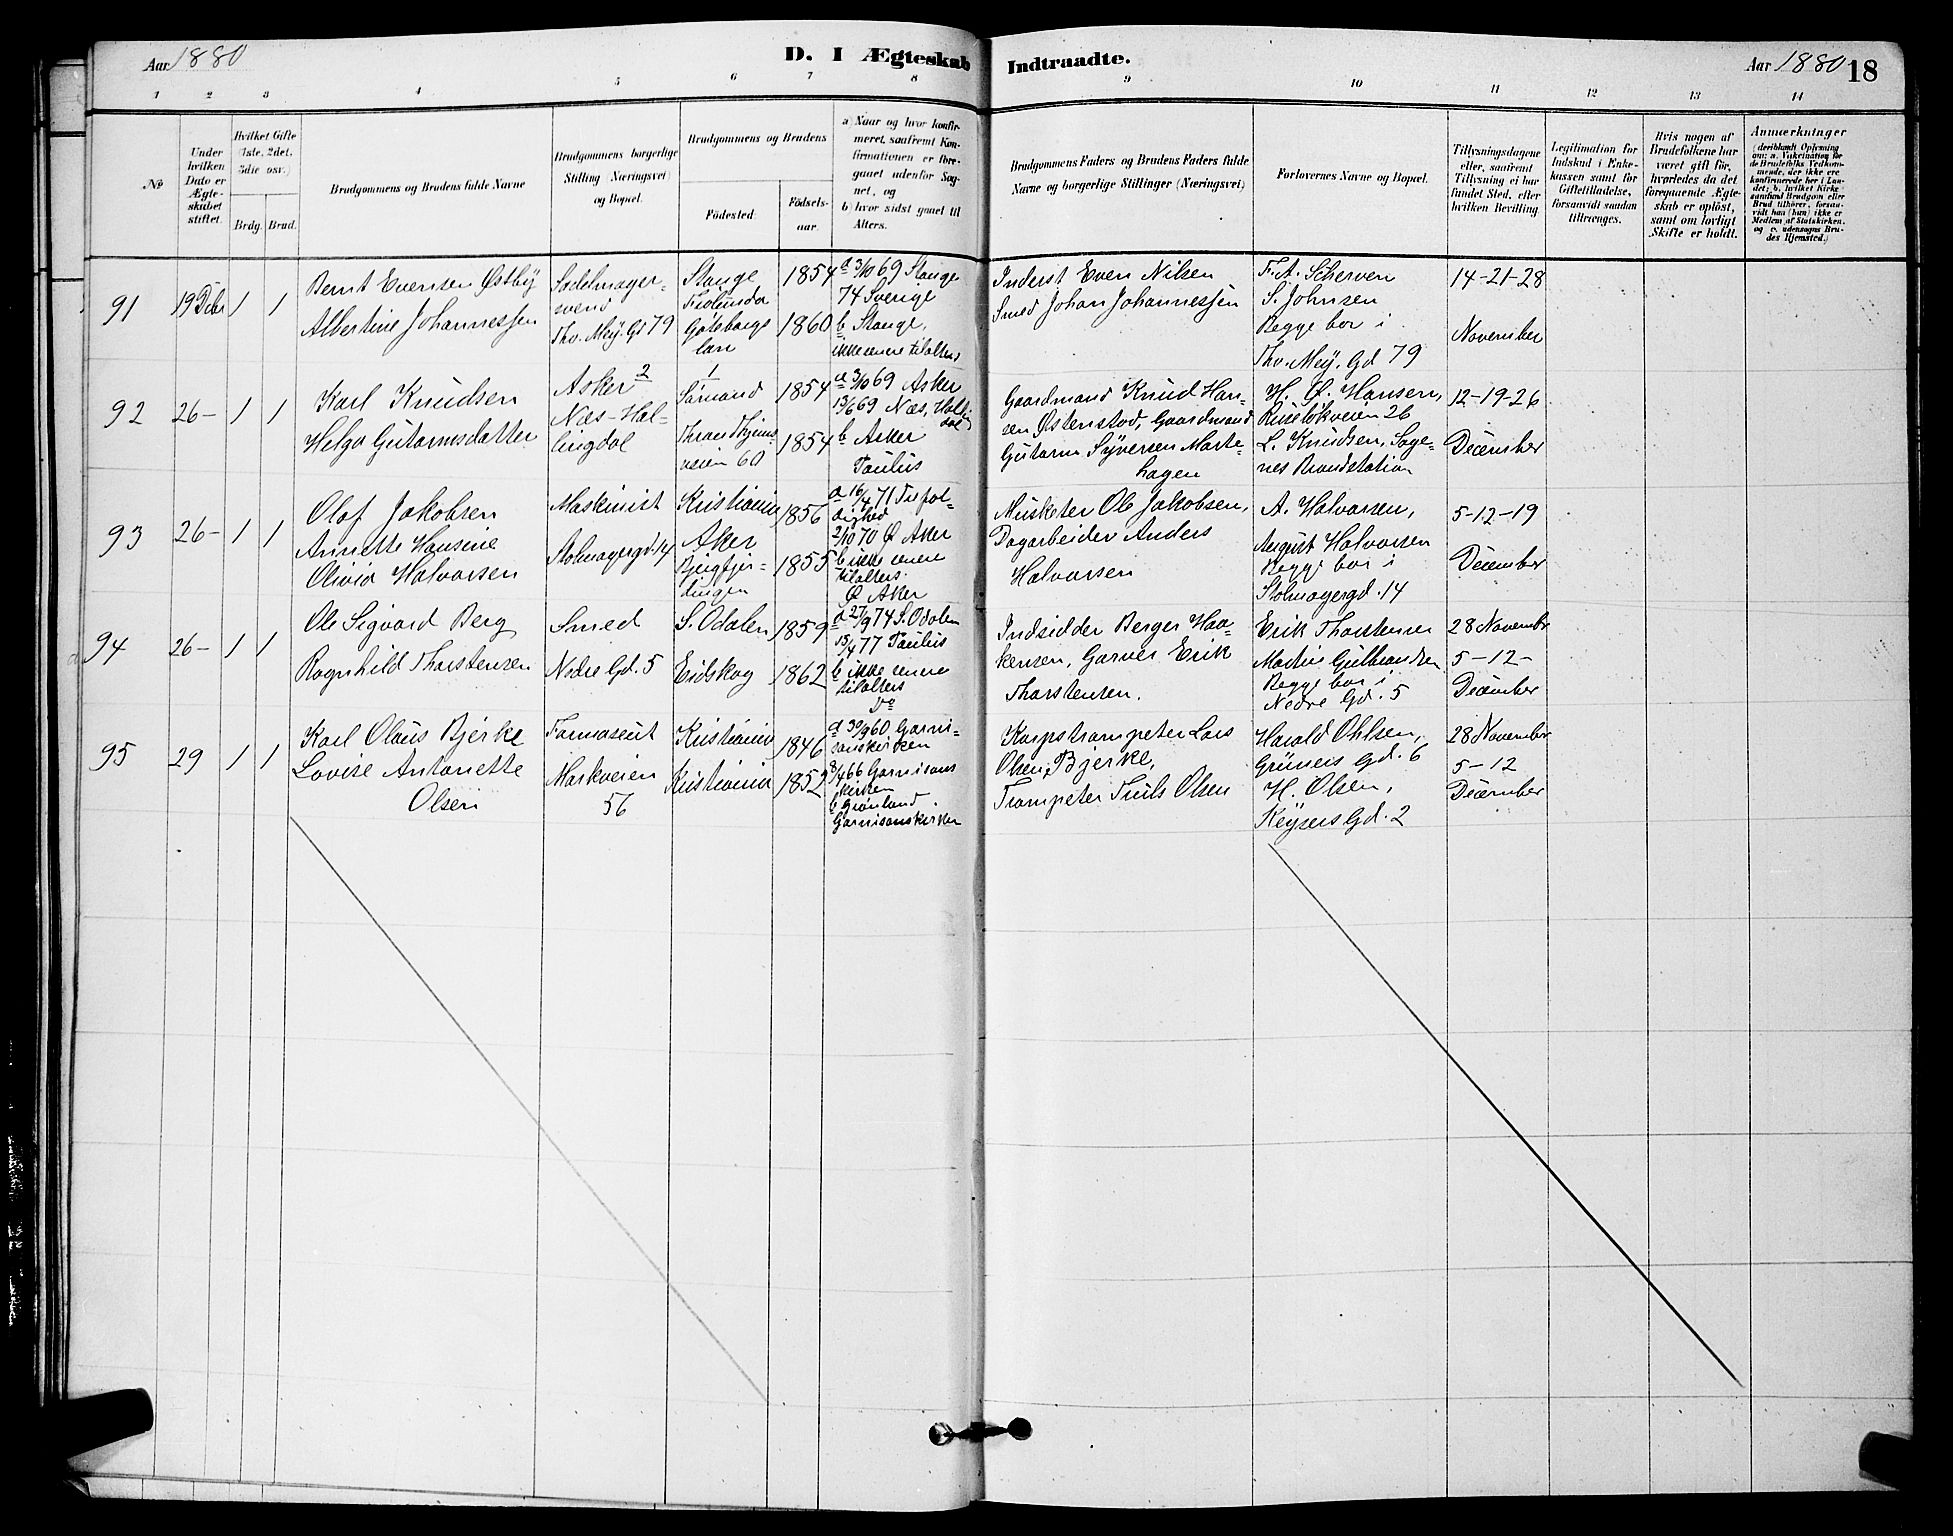 Aar 1880
D. I Ægteskab Indtraadte.
Aar 1880 18
1 2 3 4 5 6 7 8 9 10 11 12 13 14
No
Under hvilken Dato er Ægteskabet stiftet.
Hvilket Gifte (1ste, 2det, 3die osv.)
Brdg. Brud.
Brudgommens og Brudens fulde Navne
Brudgommens borgerlige Stilling (Næringsvei) og Bopæl.
Brudgommens og Brudens
Födested.
Födsels-aar.
a) Naar og hvor konfir-
meret, saafremt Kon-
firmationen er fore-
gaaet udenfor Sog-
net, og
b) hvor sidst gaaet til
Alters.
Brudgommens Faders og Brudens Faders fulde
Navne og borgerlige Stillinger (Næringsvei)
Forlovernes Navne og Bopæl.
Tillysningsdagene
eller, saafremt
Tillysning ei har
fundet Sted, efter
hvilken Bevilling.
Legitimation for
Indskud i Enke-
kassen samt for
Giftetilladelse,
forsaavidt saadan
tiltrænges.
Hvis nogen af
Brudefolkene har
været gift før,
hvorledes da det
foregaaende Ægte-
skab er oplöst,
samt om lovligt
Skifte er holdt.
Anmærkninger
(deriblandt Oplysning
om: a. Vakcination for
de Brudefolks Vedkom-
mende, der ikke ere
konfirmerede her i Lan-
det; b. hvilket Kirke-
samfund Brudgom eller
Brud tilhörer, forsaa-
vidt han (hun) ikke er
Medlem af Statskirken,
og c. udensogns Bru-
des Hjemsted.)
91 19 Dcbr 1 1
Bernt Evensen Østby
Albertine Johannessen
Sadelmager-
svend
Thv. Mey. Gd 79
Stange
Göteborgs
län
1854
1860
a 3/10 69 Stange
74 Sverige
b Stange,
ikke senere tilalters
Inderst Even Nilsen
Smed Johan Johannessen
F. A. Scherven
S. Johnsen
Begge bor i
Thv. Mey. Gd 79
14-21-28
November
92 26- 1 1
Karl Knudsen
Helga Guttormsdatter
Asker 2
Næs-Hal-
lingdal
1
Sörmand
Throndhjems-
veien 60
1854
1854
a 3/10 69 Asker
13/6 69 Næs, Halling
dal
b Asker
Paulus
Gaardmand Knud Han-
sen Østenstad, Gaardmand
Guttorm Syversen Marte-
hagen
H. Ø. Hansen,
Ruseløkveien 26
L. Knudsen, Sage-
nes Brandstation
12-19-26
December
93 26- 1 1
Olaf Jakobsen
Annette Hansine
Olivia Halvorsen
Maskinist
Stolmagergd. 14
Kristiania
Aker
Bjergfjer-
dingen
1856
1855
a 16/4 71 Trefol-
dighed
2/10 70 Ø Aker
b ikke senere
tilalters.
Ø Aker
Musketer Ole Jakobsen,
Dagarbeider Anders
Halvorsen
A. Halvorsen,
August Halvorsen
Begge bor i
Stolmagergd. 14
5-12-19
December
94 26- 1 1
Ole Sigvard Berg
Ragnhild Thorstensen
Smed
Nedre Gd. 5
S. Odalen
Eidskog
1859
1862
a 27/9 74 S. Odalen
15/4 77 Paulus
b ikke senere
tilalters
Do
Indsidder Berger Haa-
kensen, Garver Erik
Thorstensen.
Erik Thorstensen
Martin Gulbrandsen
Begge bor i
Nedre Gd. 5
28 Novembr
5-12-
December
95 29 1 1
Karl Olaus Bjerke
Lovise Antonette
Olsen
Farmaseut
Markveien
56
Kristiania
Kristiania
1846
1852
a 30/9 60 Garni-
sonskirken
8/4 66 Garnisons
kirken
b Grønland
Garnisonskirken
Korpstrompeter Lars
Olsen Bjerke,
Trompeter Truls Olsen
Harald Ohlsen,
Grüners Gd. 6
H. Olsen,
Keysers Gd. 2
28 November
5-12
December